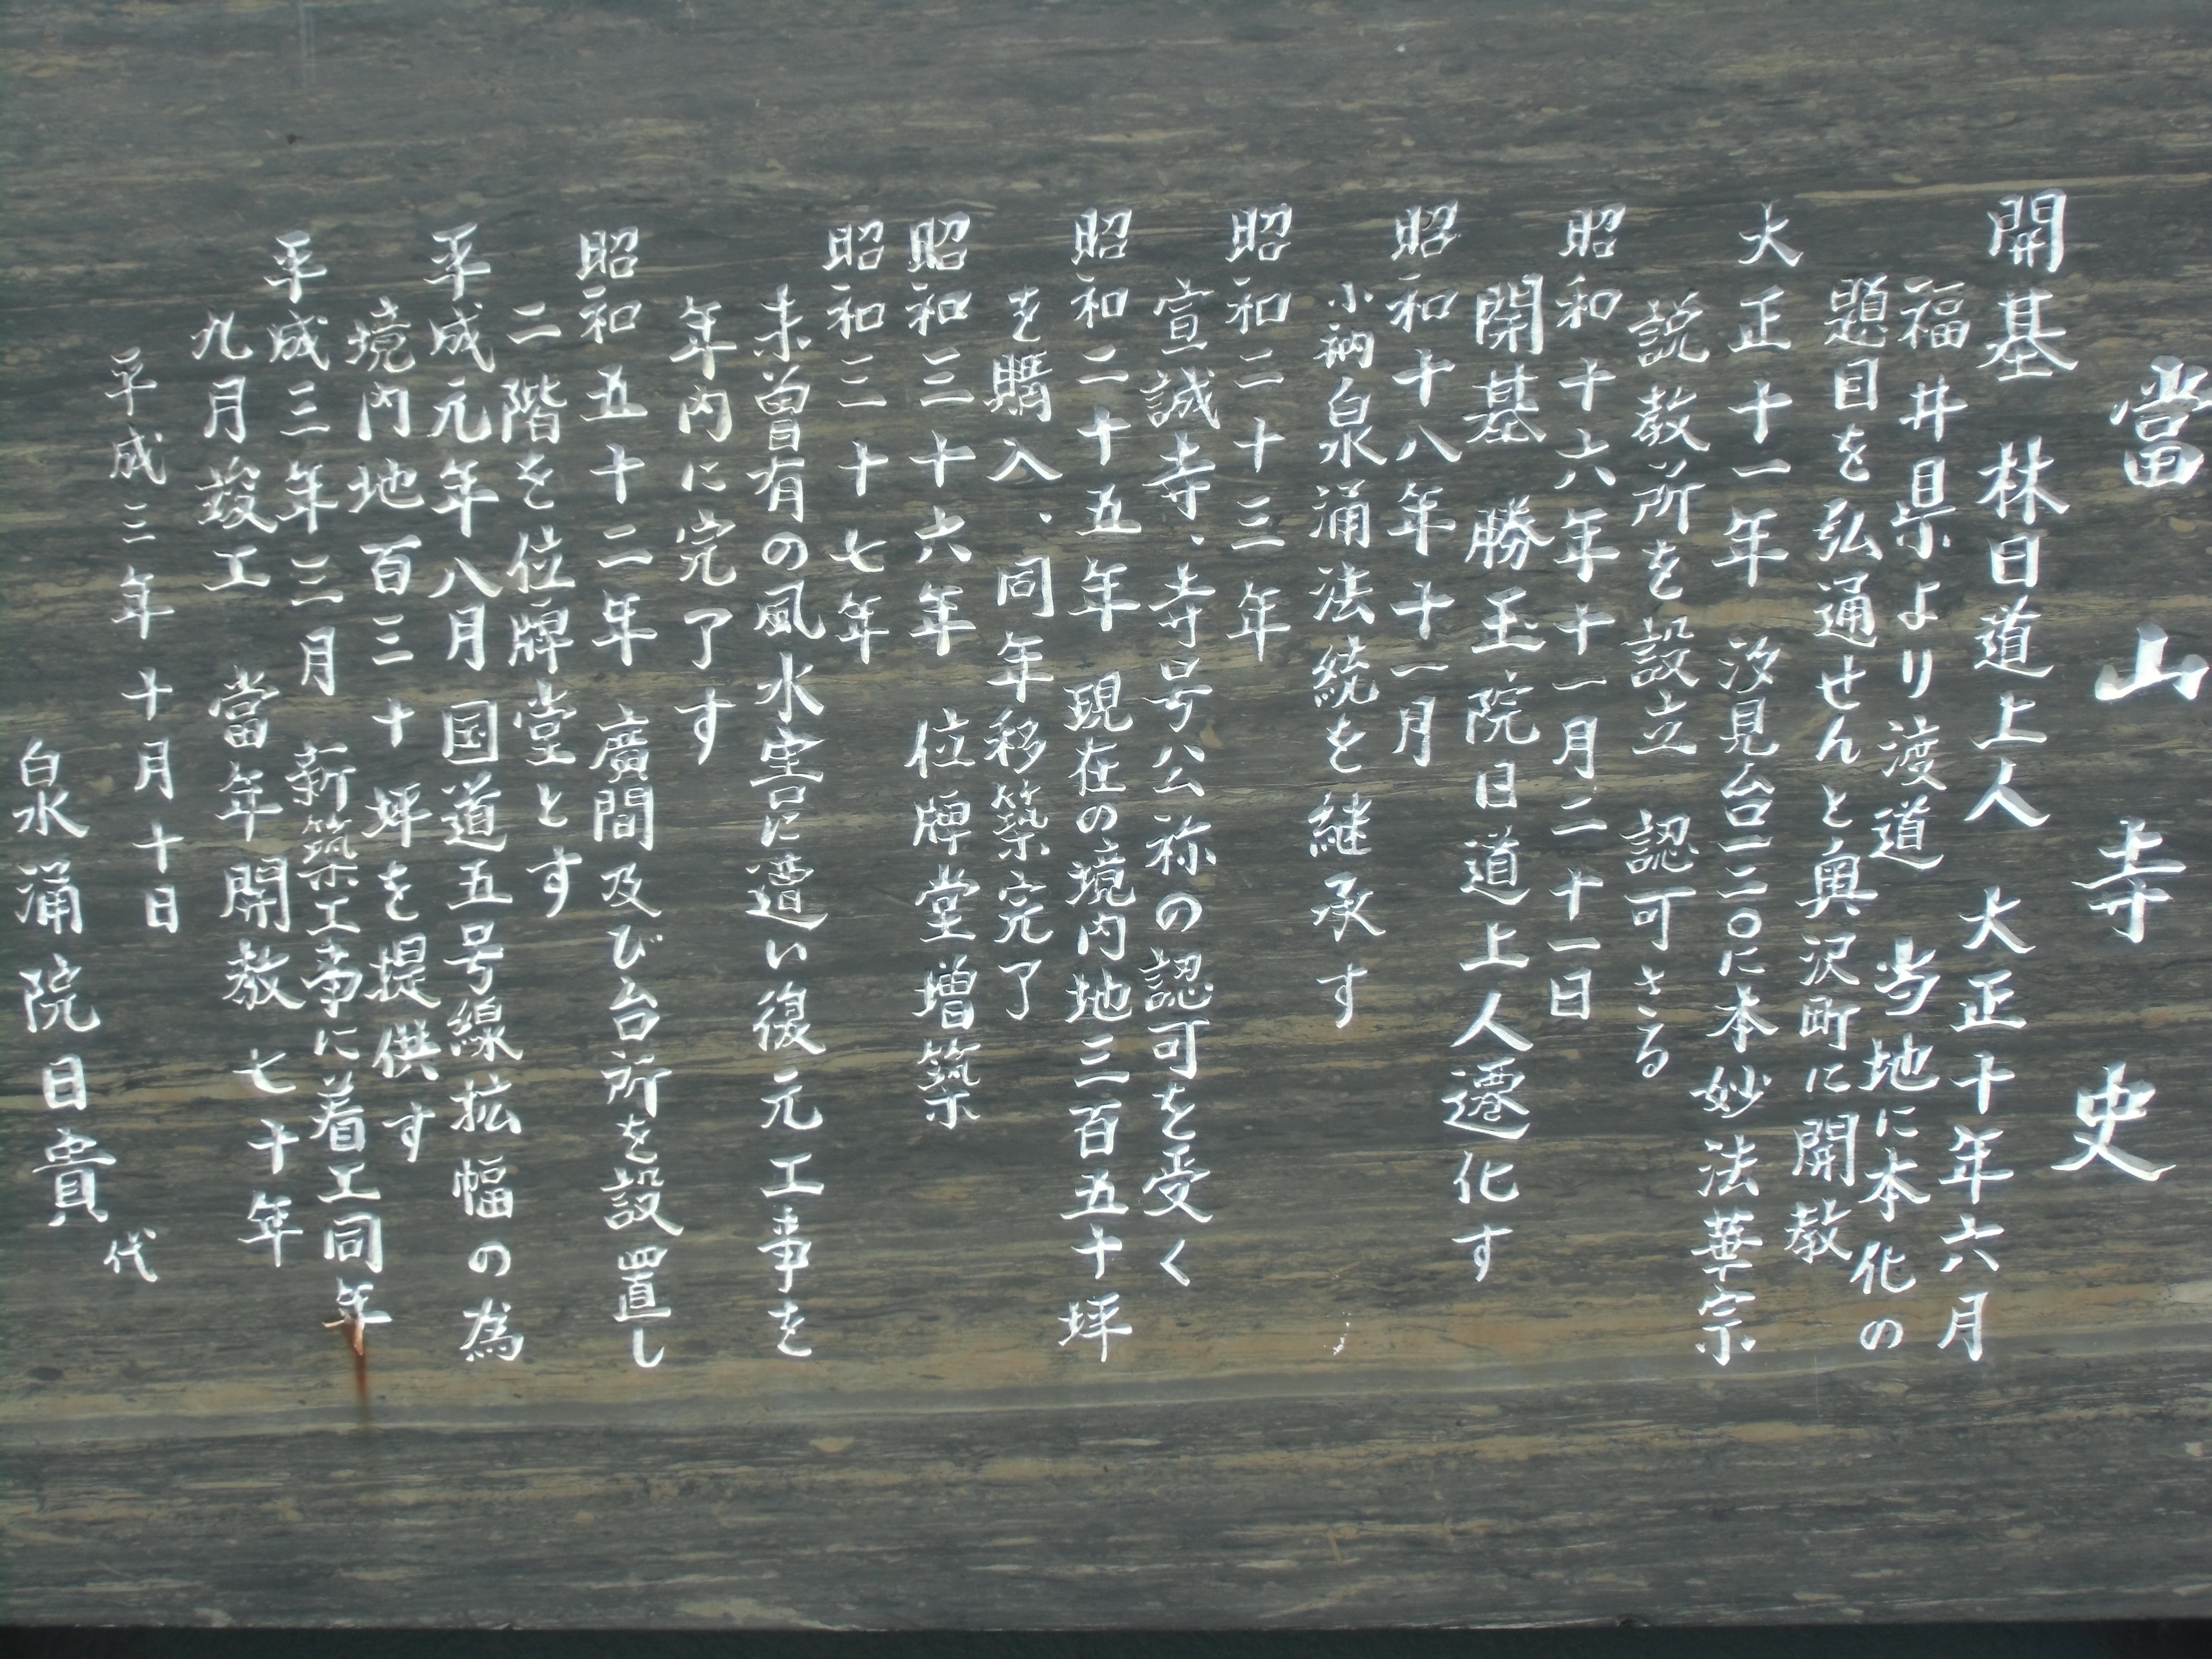 當山寺史
開基 林日道上人 大正十年六月
福井県より渡道 当地に本化の
題目を弘通せんと奥沢町に開教
大正十一年 汐見台一二〇に本妙法華宗
説教所を設立 認可さる
昭和十六年十一月二十一日
開基 勝玉院日道上人遷化す
昭和十八年十一月
小衲泉涌法統を継承す
昭和二十三年
宣誠寺、寺号公称の認可を受く
昭和二十五年 現在の境内地三百五十坪
を購入、同年移築完了
昭和三十六年 位牌堂増築
昭和三十七年
未曽有の風水害に遭い復元工事を
年内に完了す
昭和五十二年 廣間及び台所を設置し
二階を位牌堂とす
平成元年八月国道五号線拡幅の為
境内地百三十坪を提供す
平成三年三月 新築工事に着工同年
九月竣工 當年開教七十年
平成三年十月十日
泉涌院日貴 代